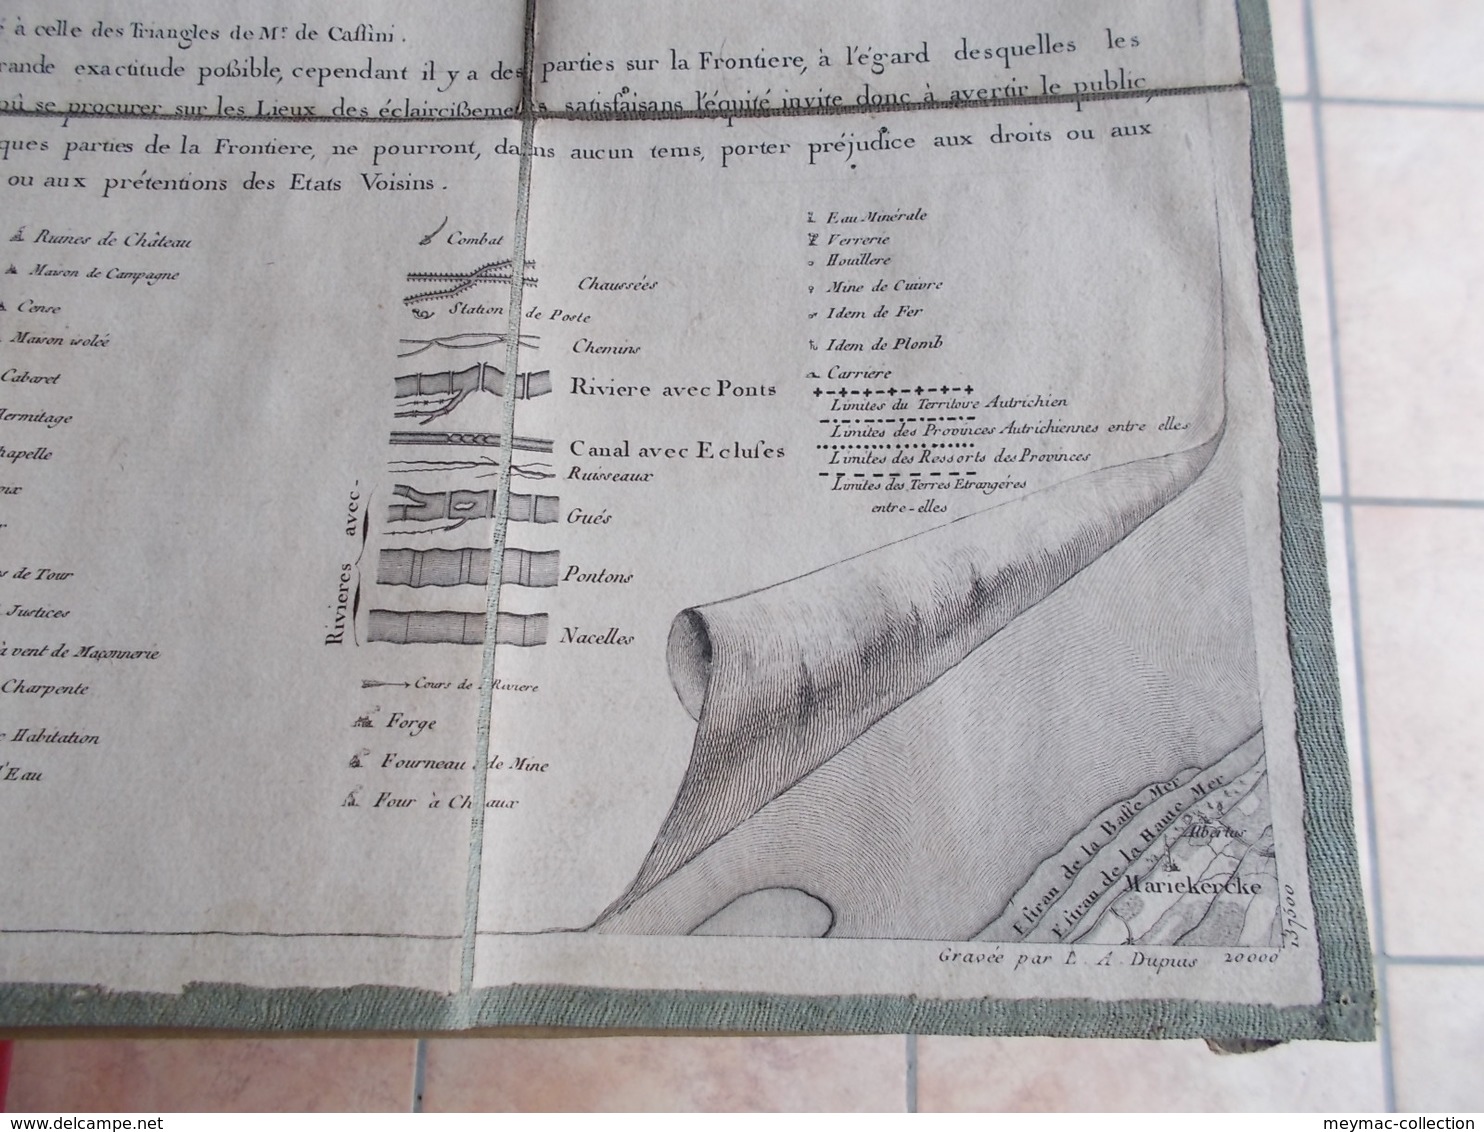 à celle des Triangles de Mr. de Caſſini.
rande exactitude poßible, cependant il y a des parties sur la Frontiere, à l'égard desquelles les
se procurer sur les Lieux des éclaircißemens satisfaisans l'équité invite donc à avertir le public,
ques parties de la Frontiere, ne pourront, dans aucun tems, porter préjudice aux droits ou aux
ou aux prétentions des Etats Voisins.
Ruines de Château
Maison de Campagne
Cense
Maison isoleé
Cabaret
Hermitage
hapelle
oix
s de Tour
Justices
à vent de Maçonnerie
Charpente
Habitation
d'Eau
Combat
Chaussées
Station de Poste
Chemins
Riviere avec Ponts
Canal avec Ecluſes
Ruisseaux
Rivieres avec
Gués
Pontons
Nacelles
Cours de Riviere
Forge
Fourneau de Mine
Four à Chaux
Eau Minérale
Verrerie
Houillere
Mine de Cuivre
Idem de Fer
Idem de Plomb
Carriere
Limites du Territoire Autrichien
Limites des Provinces Autrichiennes entre elles
Limites des Ressorts des Provinces
Limites des Terres Etrangéres
entre-elles
Eſtran de la Baſſe Mer
Eſtran de la Haute Mer
Albertus
Mariekercke
Gravée par L. A. Dupuis 20000
137500
www.delcampe.net
meymac-collection